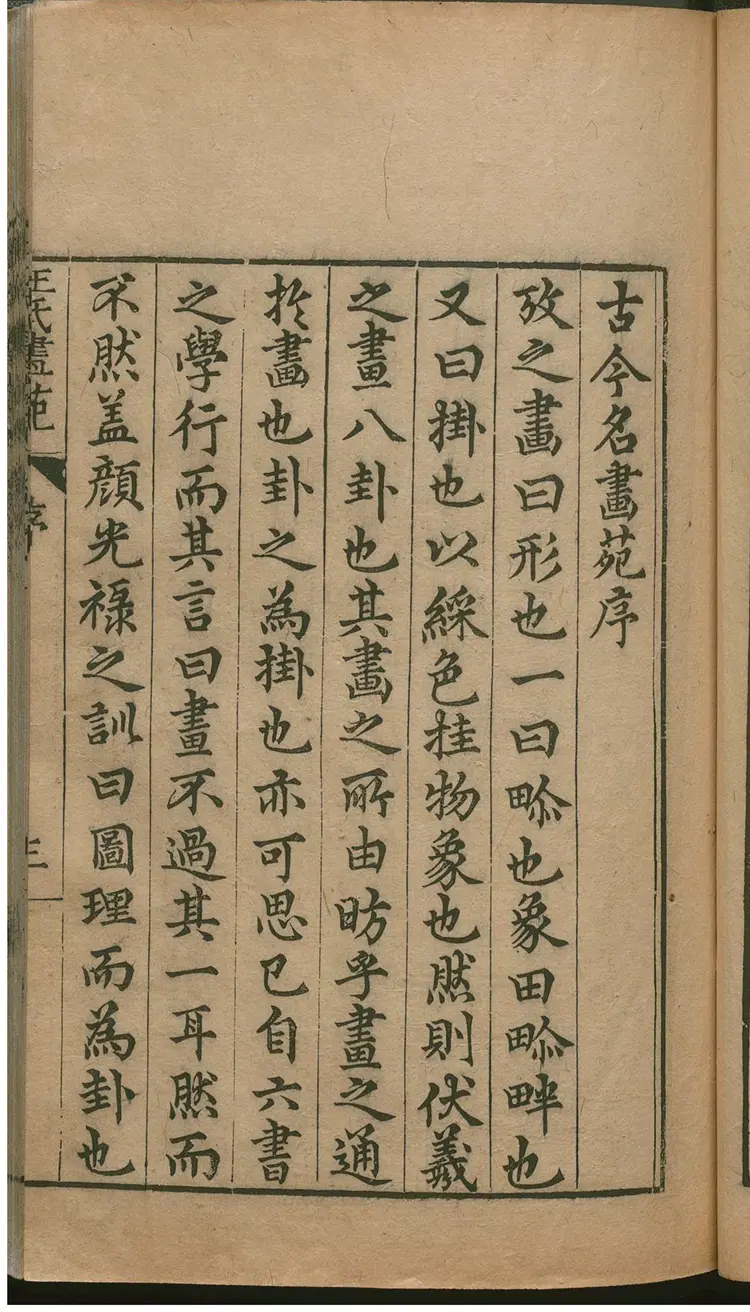 古今名畫苑序
攷之畫曰形也一曰畛也象田畛畔也
又曰掛也以綵色挂物象也然則伏羲
之畫八卦也其畫之所由昉乎畫之通
扵畫也卦之為掛也亦可思已自六書
之學行而其言曰畫不過其一耳然而
不然盖顔光祿之訓曰圖理而為卦也
王氏畫苑
序